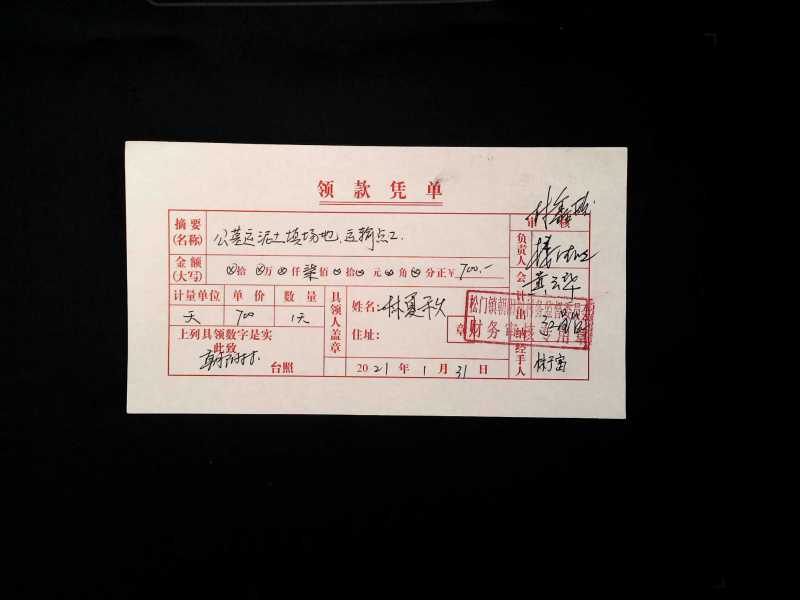 领款凭单
摘要(名称) 公墓运泥土填场地、运输点工
审核 林鑫
金额(大写) ⊗拾⊗万⊗仟柒佰⊗拾⊗元⊗角⊗分正¥700.-
负责人
会计 黄云华
计量单位 单价 数量
天 700 1天
具领人盖章
姓名: 林夏秋
住址: 章
出纳
松门镇朝附村村务监督委员会
财务审核专用章
上列具领数字是实
此致
朝附村 台照
2021年1月31日
经手人 林于富